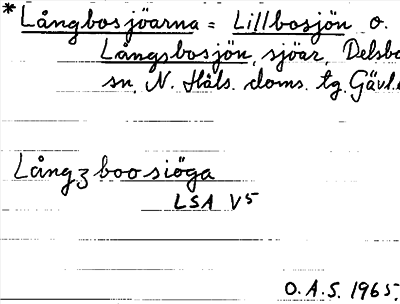 *Långbosjöarna = Lillbosjön o.
Långsbosjön, sjöar, Delsbo
sn, N. Häls. doms. tg. Gävl.
Långzboosiöga
LSA V5
O.A.S. 1965.